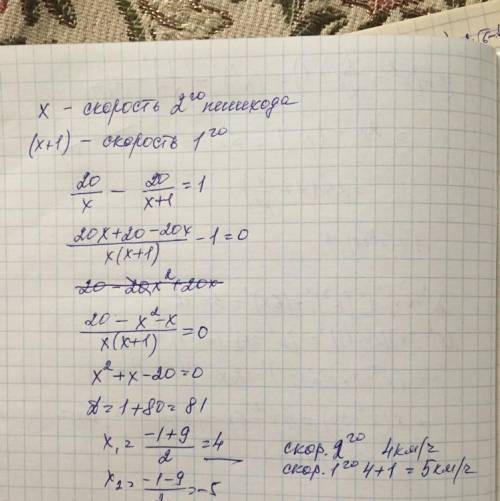 x – скорость 2го пешехода
(x+1) – скорость 1го
20/x – 20/(x+1) = 1
(20x+20–20x)/(x(x+1)) – 1 = 0
20 – 20x² + 20x
(20 – x² – x)/(x(x+1)) = 0
x² + x – 20 = 0
D = 1 + 80 = 81
x₁ = (–1+9)/2 = 4
x₂ = (–1–9)/2 = –5
скор. 2го 4км/г
скор. 1го 4+1 = 5км/г